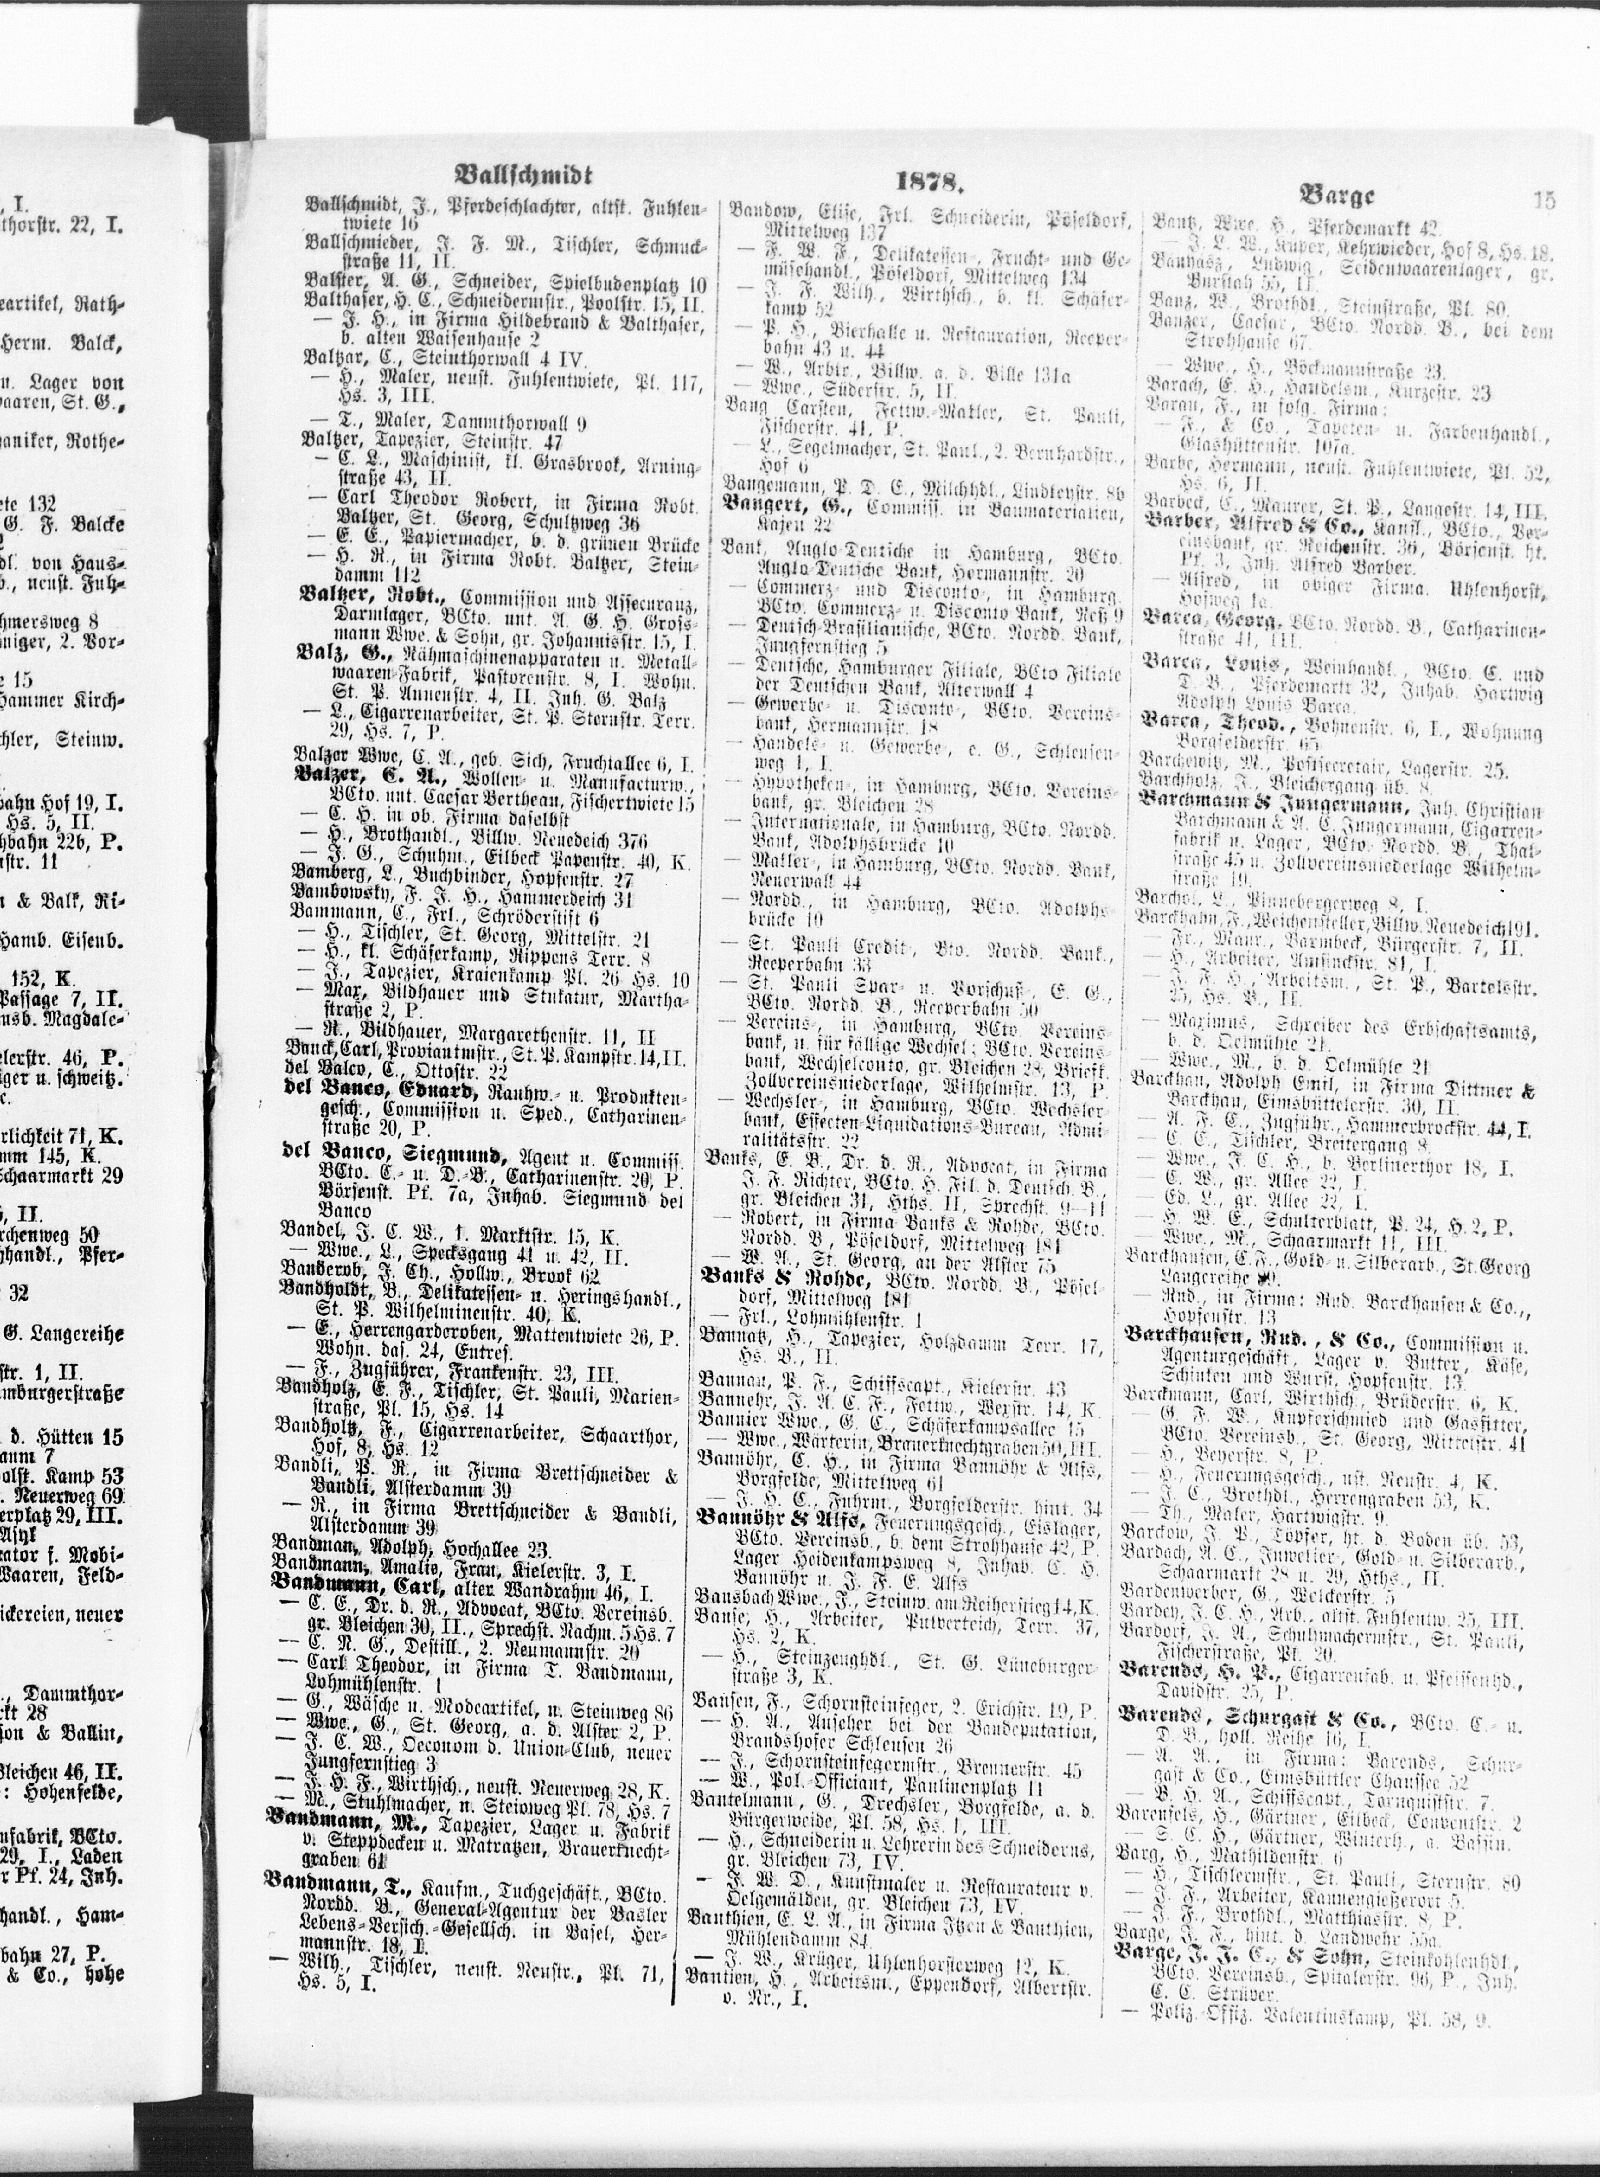 , I.
thorstr. 22, I.
eartikel, Rath-
Herm. Balck,
n. Lager von
waaren, St. G.,
aniker, Rothe-
ete 132
G. F. Balcke
dl. von Haus-
b., neust. Fuh-
hmersweg 8
niger, 2. Vor-
e 15
Hammer Kirch-
hler, Steinw.
bahn Hof 19, I.
Hs. 5, II.
hbahn 22b, P.
nstr. 11
n & Balk, Ri-
Hamb. Eisenb.
152, K.
Passage 7, II.
nsb. Magdale-
lerstr. 46, P.
iger u. schweitz.
c.
rlichkeit 71, K.
mm 145, K.
Schaarmarkt 29
, II.
rchenweg 50
hhandl., Pfer-
32
G. Langereihe
str. 1, II.
mburgerstraße
d. Hütten 15
aum 7
olst. Kamp 53
. Neuerweg 69
erplatz 29, III.
Asyl
rator f. Mobi-
Waaren, Feld-
ickereien, neuer
., Dammthor-
kt 28
on & Ballin,
Bleichen 46, II.
: Hohenfelde,
nfabrik, BCto.
29, I., Laden
r Pf. 24, Inh.
handl., Ham-
bahn 27, P.
& Co., hohe
Ballschmidt
Ballschmidt, J., Pferdeschlachter, altst. Fuhlen-
twiete 16
Ballschmieder, J. F. M., Tischler, Schmuck-
straße 11, II.
Balster, A. G., Schneider, Spielbudenplatz 10
Balthaser, H. C., Schneidermstr., Poolstr. 15, II.
— J. H., in Firma Hildebrand & Balthaser,
b. alten Waisenhause 2
Baltzar, C., Steinthorwall 4 IV.
— H., Maler, neust. Fuhlentwiete, Pl. 117,
Hs. 3, III.
— T., Maler, Dammthorwall 9
Baltzer, Tapezier, Steinstr. 47
— C. L., Maschinist, kl. Grasbrook, Arning-
straße 43, II.
— Carl Theodor Robert, in Firma Robt.
Baltzer, St. Georg, Schultzweg 36
— E. E., Papiermacher, b. d. grünen Brücke
— H. R., in Firma Robt. Baltzer, Stein-
damm 112
Baltzer, Robt., Commission und Assecuranz,
Darmlager, BCto. unt. A. G. H. Gross-
mann Wwe. & Sohn, gr. Johannisstr. 15, I.
Balz, G., Nähmaschinenapparaten u. Metall-
waaren-Fabrik, Pastorenstr. 8, I. Wohn.
St. P. Annenstr. 4, II. Inh. G. Balz
— L., Cigarrenarbeiter, St. P. Sternstr. Terr.
29, Hs. 7, P.
Balzer Wwe, C. A., geb. Sich, Fruchtallee 6, I.
Balzer, C. A., Wollen- u. Manufacturw.,
BCto. unt. Caesar Bertheau, Fischertwiete 15
— C. H. in ob. Firma daselbst
— H., Brothandl., Billw. Neuedeich 376
— J. G., Schuhm., Eilbeck Papenstr. 40, K.
Bamberg, L., Buchbinder, Hopfenstr. 27
Bambowsky, F. J. H., Hammerdeich 31
Bammann, C., Frl., Schröderstift 6
— H., Tischler, St. Georg, Mittelstr. 21
— H., kl. Schäferkamp, Rippens Terr. 8
— J., Tapezier, Kraienkamp Pl. 26 Hs. 10
— Max, Bildhauer und Stukatur, Martha-
straße 2, P.
— R., Bildhauer, Margarethenstr. 11, II
Banck, Carl, Proviantmstr., St. P. Kampstr. 14, II.
del Balco, C., Ottostr. 22
del Banco, Eduard, Rauhw.- u. Produkten-
gesch., Commission u. Sped., Catharinen-
straße 20, P.
del Banco, Siegmund, Agent u. Commiss.
BCto. C.- u. D.-B., Catharinenstr. 20, P.
Börsenst. Pf. 7a, Inhab. Siegmund del
Banco
Bandel, J. C. W., 1. Marktstr. 15, K.
— Wwe., L., Specksgang 41 u. 42, II.
Banderob, J. Ch., Hollw., Brook 62
Bandholdt, B., Delikatessen- u. Heringshandl.,
St. P. Wilhelminenstr. 40, K.
— E., Herrengarderoben, Mattentwiete 26, P.
Wohn. das. 24, Entres.
— F., Zugführer, Frankenstr. 23, III.
Bandholz, E. F., Tischler, St. Pauli, Marien-
straße, Pl. 15, Hs. 14
Bandholtz, F., Cigarrenarbeiter, Schaarthor,
Hof, 8, Hs. 12
Bandli, P. R., in Firma Brettschneider &
Bandli, Alsterdamm 39
— R., in Firma Brettschneider & Bandli,
Alsterdamm 39
Bandman, Adolph, Hochallee 23.
Bandmann, Amalie, Frau, Kielerstr. 3, I.
Bandmann, Carl, alter Wandrahm 46, I.
— C. E., Dr. d. R., Advocat, BCto. Vereinsb.
gr. Bleichen 30, II., Sprechst. Nachm. 5 Hs. 7
— C. N. G., Destill., 2. Neumannstr. 20
— Carl Theodor, in Firma T. Bandmann,
Lohmühlenstr. 1
— G., Wäsche u. Modeartikel, n. Steinweg 86
— Wwe., G., St. Georg, a. d. Alster 2, P.
— J. C. W., Oeconom d. Union-Club, neuer
Jungfernstieg 3
— J. H. F., Wirthsch., neust. Neuerweg 28, K.
— M., Stuhlmacher, n. Steinweg Pl. 78, Hs. 7
Bandmann, M., Tapezier, Lager u. Fabrik
v. Steppdecken u. Matratzen, Brauerknecht-
graben 61
Bandmann, T., Kaufm., Tuchgeschäft., BCto.
Nordd. B., General-Agentur der Basler
Lebens-Versich.-Gesellsch. in Basel, Her-
mannstr. 18, I.
— Wilh., Tischler, neust. Neustr., Pl. 71,
Hs. 5, I.
1878.
Bandow, Elise, Frl. Schneiderin, Pöseldorf,
Mittelweg 137
— F. W. F., Delikatessen-, Frucht- und Ge-
müsehandl., Pöseldorf, Mittelweg 134
— J. F. Wilh., Wirthsch., b. kl. Schäfer-
kamp 52
— P. H., Bierhalle u. Restauration, Reeper-
bahn 43 u. 44
— W., Arbtr., Billw. a. d. Bille 131a
— Wwe., Süderstr. 5, II.
Bang Carsten, Fettw.-Makler, St. Pauli,
Fischerstr. 41, P.
— L., Segelmacher, St. Paul., 2. Bernhardstr.,
Hof 6
Bangemann, P. D. E., Milchhdl., Lindleystr. 8b
Bangert, G., Commiss. in Baumaterialien,
Kajen 22
Bank, Anglo-Deutsche in Hamburg, BCto.
Anglo-Deutsche Bank, Hermannstr. 20
— Commerz- und Disconto-, in Hamburg.
BCto. Commerz- u. Disconto Bank, Neß 9
— Deutsch-Brasilianische, BCto. Nordd. Bank,
Jungfernstieg 5
— Deutsche, Hamburger Filiale, BCto Filiale
der Deutschen Bank, Alterwall 4
— Gewerbe- u. Disconto-, BCto. Vereins-
bank, Hermannstr. 18
— Handels- u. Gewerbe-, e. G., Schleusen-
weg 1, I.
— Hypotheken-, in Hamburg, BCto. Vereins-
bank, gr. Bleichen 28
— Internationale, in Hamburg, BCto. Nordd.
Bank, Adolphsbrücke 10
— Makler-, in Hamburg, BCto. Nordd. Bank,
Neuerwall 44
— Nordd., in Hamburg, BCto. Adolphs-
brücke 10
— St. Pauli Credit-, Bto. Nordd. Bank.,
Reeperbahn 33
— St. Pauli Spar- u. Vorschuß-, E. G.,
BCto. Nordd. B., Reeperbahn 50
— Vereins-, in Hamburg, BCto. Vereins-
bank, u. für fällige Wechsel: BCto. Vereins-
bank, Wechselconto, gr. Bleichen 28, Briefk.
Zollvereinsniederlage, Wilhelmstr. 13, P.
— Wechsler-, in Hamburg, BCto. Wechsler-
bank, Effecten-Liquidations-Bureau, Admi-
ralitätsstr. 22
Banks, E. B., Dr. d. R., Advocat, in Firma
J. F. Richter, BCto. H. Fil. d. Deutsch. B.,
gr. Bleichen 31, Hths. II, Sprechst. 9—11
— Robert, in Firma Banks & Rohde, BCto.
Nordd. B, Pöseldorf, Mittelweg 181
— W. A., St. Georg, an der Alster 75
Banks & Rohde, BCto. Nordd. B., Pösel-
dorf, Mittelweg 181
— Frl., Lohmühlenstr. 1
Bannatz, H., Tapezier, Holzdamm Terr. 17,
Hs. B., II.
Bannau, P. F., Schiffscapt., Kielerstr. 43
Bannehr, J. A. C. F., Fettw., Wexstr. 14, K.
Bannier Wwe., G. C., Schäferkampsallee 15
— Wwe., Wärterin, Brauerknechtgraben 50, III.
Bannöhr, C. H., in Firma Bannöhr & Alfs,
Borgfelde, Mittelweg 61
— J. H. C., Fuhrm., Borgfelderstr. hint. 34
Bannöhr & Alfs, Feuerungsgesch., Eislager,
BCto. Vereinsb., b. dem Strohhause 42, P.
Lager Heidenkampsweg 8, Inhab. C. H.
Bannöhr u. J. F. E. Alfs
Bansbach Wwe., J., Steinw. am Reiherstieg 14, K.
Banse, H., Arbeiter, Pulverteich, Terr. 37,
Hs. 2, K.
— H., Steinzeughdl., St. G. Lüneburger-
straße 3, K.
Bansen, F., Schornsteinfeger, 2. Erichstr. 19, P.
— H. A., Aufseher bei der Baudeputation,
Brandshofer Schleusen 26
— J., Schornsteinfegermstr., Brennerstr. 45
— W., Pol.-Officiant, Paulinenplatz 11
Bantelmann, G., Drechsler, Borgfelde, a. d.
Bürgerweide, Pl. 58, Hs. 1, III.
— H., Schneiderin u. Lehrerin des Schneiderns,
gr. Bleichen 73, IV.
— J. W. D., Kunstmaler u. Restaurateur v.
Oelgemälden, gr. Bleichen 73, IV.
Banthien, E. L. A., in Firma Itzen & Banthien,
Mühlendamm 84.
— J. W., Krüger, Uhlenhorsterweg 12, K.
Bantien, H., Arbeitsm., Eppendorf, Albertstr.
o. Nr., I.
Barge
15
Bantz, Wwe. H., Pferdemarkt 42.
— J. L. W., Küper, Kehrwieder, Hof 8, Hs. 18.
Banyasz, Ludwig, Seidenwaarenlager, gr.
Burstah 55, II.
Banz, W., Brothdl., Steinstraße, Pl. 80.
Banzer, Caesar, BCto. Nordd. B., bei dem
Strohhause 67.
— Wwe., H., Böckmannstraße 23.
Barach, E. H., Handelsm., Kurzestr. 23
Baran, F., in folg. Firma:
— F., & Co., Tapeten- u. Farbenhandl.,
Glashüttenstr. 107a.
Barbe, Hermann, neust. Fuhlentwiete, Pl. 52,
Hs. 6, II.
Barbeck, C., Maurer, St. P., Langestr. 14, III.
Barber, Alfred & Co., Kaufl., BCto., Ver-
einsbank, gr. Reichenstr. 36, Börsenst. ht.
Pf. 3, Inh. Alfred Barber.
— Alfred, in obiger Firma. Uhlenhorst,
Hofweg 1a.
Barca, Georg, BCto. Nordd. B., Catharinen-
straße 41, III.
Barca, Louis, Weinhandl., BCto. C. und
D. B., Pferdemarkt 32, Inhab. Hartwig
Adolph Louis Barca.
Barca, Theod., Bohnenstr. 6, I., Wohnung
Borgfelderstr. 65
Barchewitz, M., Postsecretair, Lagerstr. 25.
Barchholz, J., Bleichergang üb. 8.
Barchmann & Jungermann, Inh. Christian
Barchmann & A. C. Jungermann, Cigarren-
fabrik u. Lager, BCto. Nordd. B., Thal-
straße 45 u. Zollvereinsniederlage Wilhelm-
straße 19.
Barchol, L., Pinnebergerweg 8, I.
Barckhahn, F., Weichensteller, Billw. Neuedeich 191.
— Fr., Maur., Barmbeck, Bürgerstr. 7, II.
— H., Arbeiter, Amsinckstr. 81, I.
— J. F. H., Arbeitsm., St. P., Bartelsstr.
25, Hs. B., II.
— Maximus, Schreiber des Erbschaftsamts,
b. d. Oelmühle 21.
— Wwe., M., b. d. Oelmühle 21
Barckhan, Adolph Emil, in Firma Dittmer &
Barckhan, Eimsbüttelerstr. 30, II.
— A. F. C., Zugführ., Hammerbrookstr. 44, I.
— C. C., Tischler, Breitergang 8
— Wwe., J. C. H., b. Berlinerthor 18, I.
— C. W., gr. Allee 22, I.
— Ed. L., gr. Allee 22, I.
— H. W. E., Schulterblatt, P. 24, H. 2, P.
— Wwe., M., Schaarmarkt 11, III.
Barckhausen, C. F., Gold- u. Silberarb., St. Georg
Langereihe
— Rud., in Firma: Rud. Barckhausen & Co.,,
Hopfenstr. 13
Barckhausen, Rud., & Co., Commission u.
Agenturgeschäft, Lager v. Butter, Käse,
Schinken und Wurst, Hopfenstr. 13.
Barckmann, Carl, Wirthsch., Brüderstr. 6, K.
— G. F. W., Kupferschmied und Gasfitter,
BCto. Vereinsb., St. Georg, Mittelstr. 41
— H., Beyerstr. 8, P.
— H., Feuerungsgesch., nst. Neustr. 4, K.
— J. C., Brothdl., Herrengraben 53, K.
— Th., Maler, Hartwigstr. 9.
Barckow, J. P., Töpfer, ht. d. Boden üb. 53,
Bardach, A. C., Juwelier-, Gold- u. Silberarb.,
Schaarmarkt 28 u. 29, Hths., II.
Bardenwerber, G., Welckerstr. 5
Bardey, J. C. H., Arb., altst. Fuhlentw. 25, III.
Bardorf, J. A., Schuhmachermstr., St. Pauli,
Fischerstraße, Pl. 20.
Barends, H. P., Cigarrenfab. u. Pfeifenhd.,
Davidstr. 25, P.
Barends, Schurgast & Co., BCto. C.- u.
D. B., holl. Reihe 16, I.
— A. A., in Firma: Barends, Schur-
gast & Co., Eimsbüttler Chaussee 52
— B. H. A., Schiffscapt., Tornquiststr. 7.
Barenfels, H., Gärtner, Eilbeck, Conventstr. 2
— S. C. H., Gärtner, Winterh., a. Bassin.
Barg, H., Mathildenstr. 6
— H., Tischlermstr., St. Pauli, Sternstr. 80
— J. F., Arbeiter, Kannengießerort 5.
— J. F., Brothdl., Matthiasstr. 8, P.
Barge, J. F., hint. d. Landwehr 55a.
Barge, J. J. C., & Sohn, Steinkohlenhdl.,
BCto. Vereinsb., Spitalerstr. 96, P., Inh.
C. C. Strüver.
— Poliz.-Offiz. Valentinskamp, Pl. 58, 9.